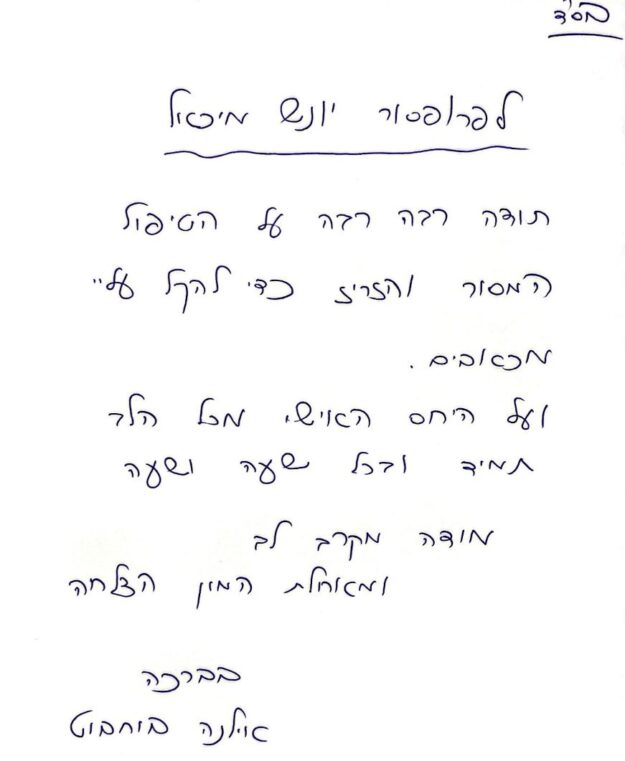 בס"ד
לפרופסור יונש מיכאל
תודה רבה רבה על הטיפול
המסור והזריז כדי להקל עליי
מכאובים.
ועל היחס האישי מכל הלב
תמיד ובכל שעה ושעה
מודה מקרב לב
ומאחלת המון הצלחה
בברכה
אילנה בוחבוט